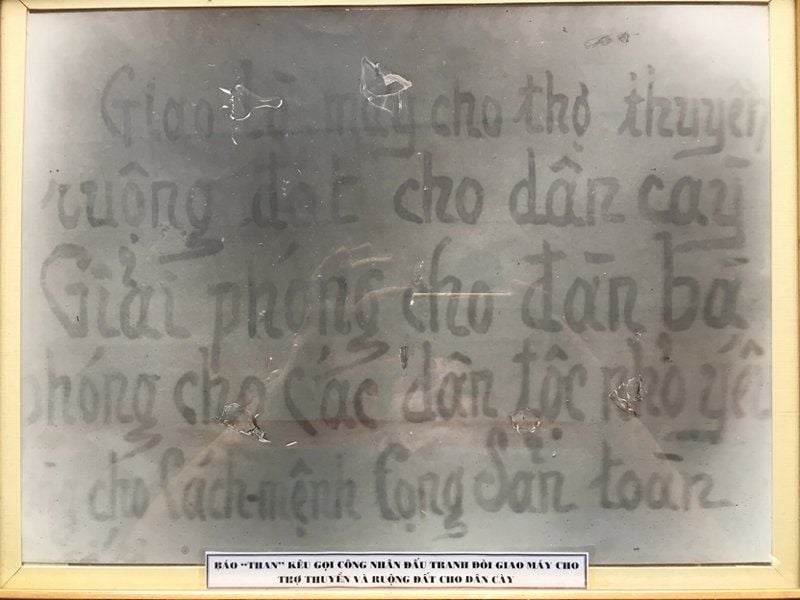 Giao lò máy cho thợ thuyền
ruộng đất cho dân cày
Giải phóng cho đàn bà
phóng cho các dân tộc nhỏ yếu
cho Cách-mệnh Cộng Sản toàn
BÁO “THAN” KÊU GỌI CÔNG NHÂN ĐẤU TRANH ĐÒI GIAO MÁY CHO
THỢ THUYỀN VÀ RUỘNG ĐẤT CHO DÂN CÀY